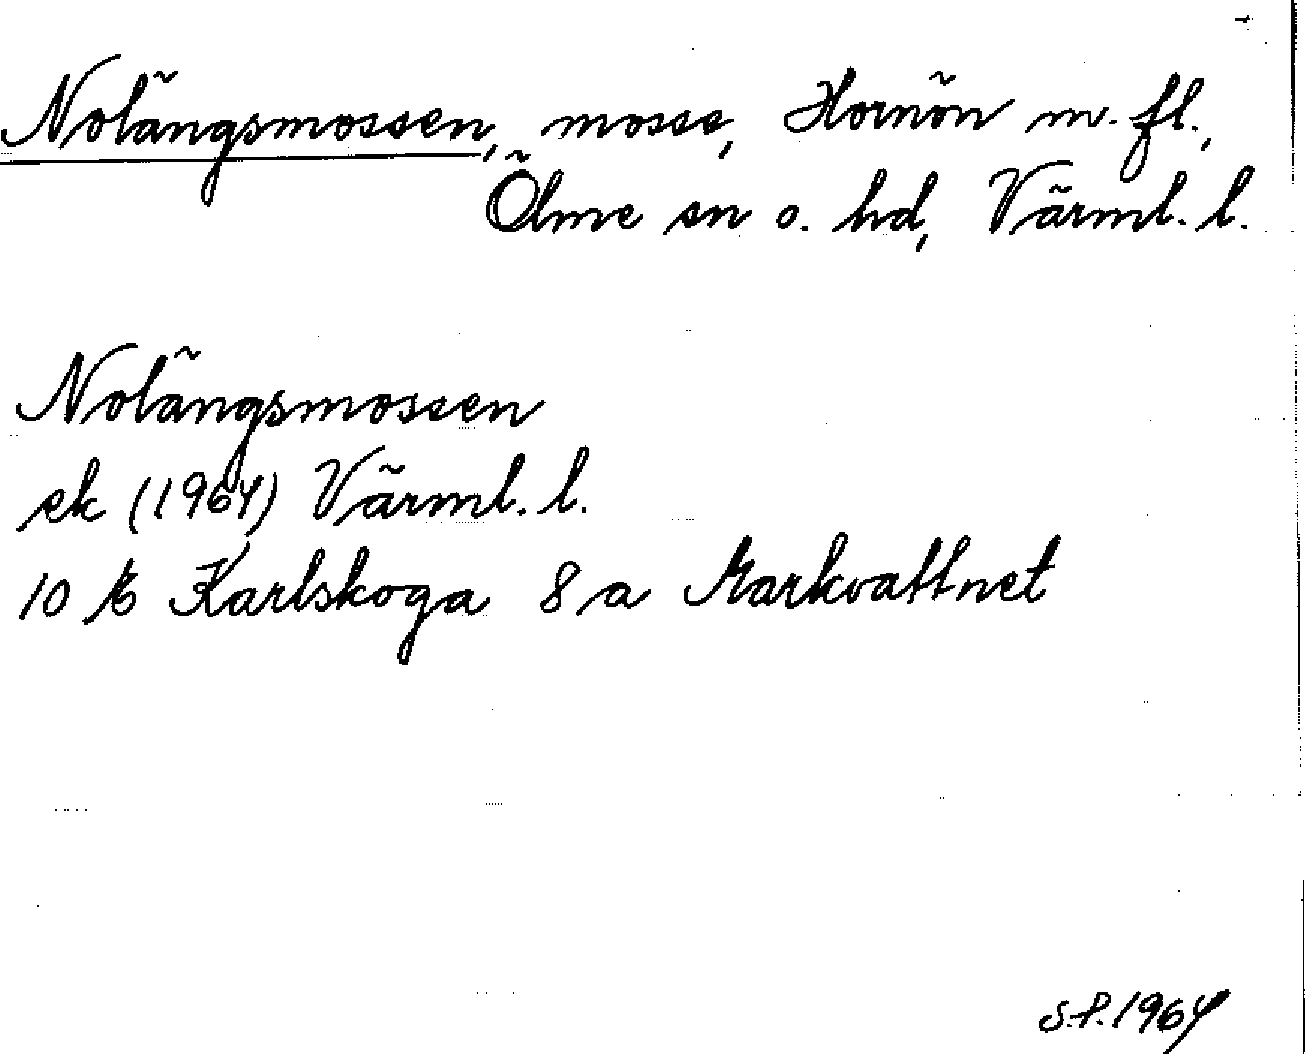 Nolängsmossen, mosse, Hornön m. fl.,
Ölme sn o. hd, Värml. l.
Nolängsmossen
ek (1964) Värml. l.
10 E Karlskoga 8 a Markvattnet
S.P. 1964